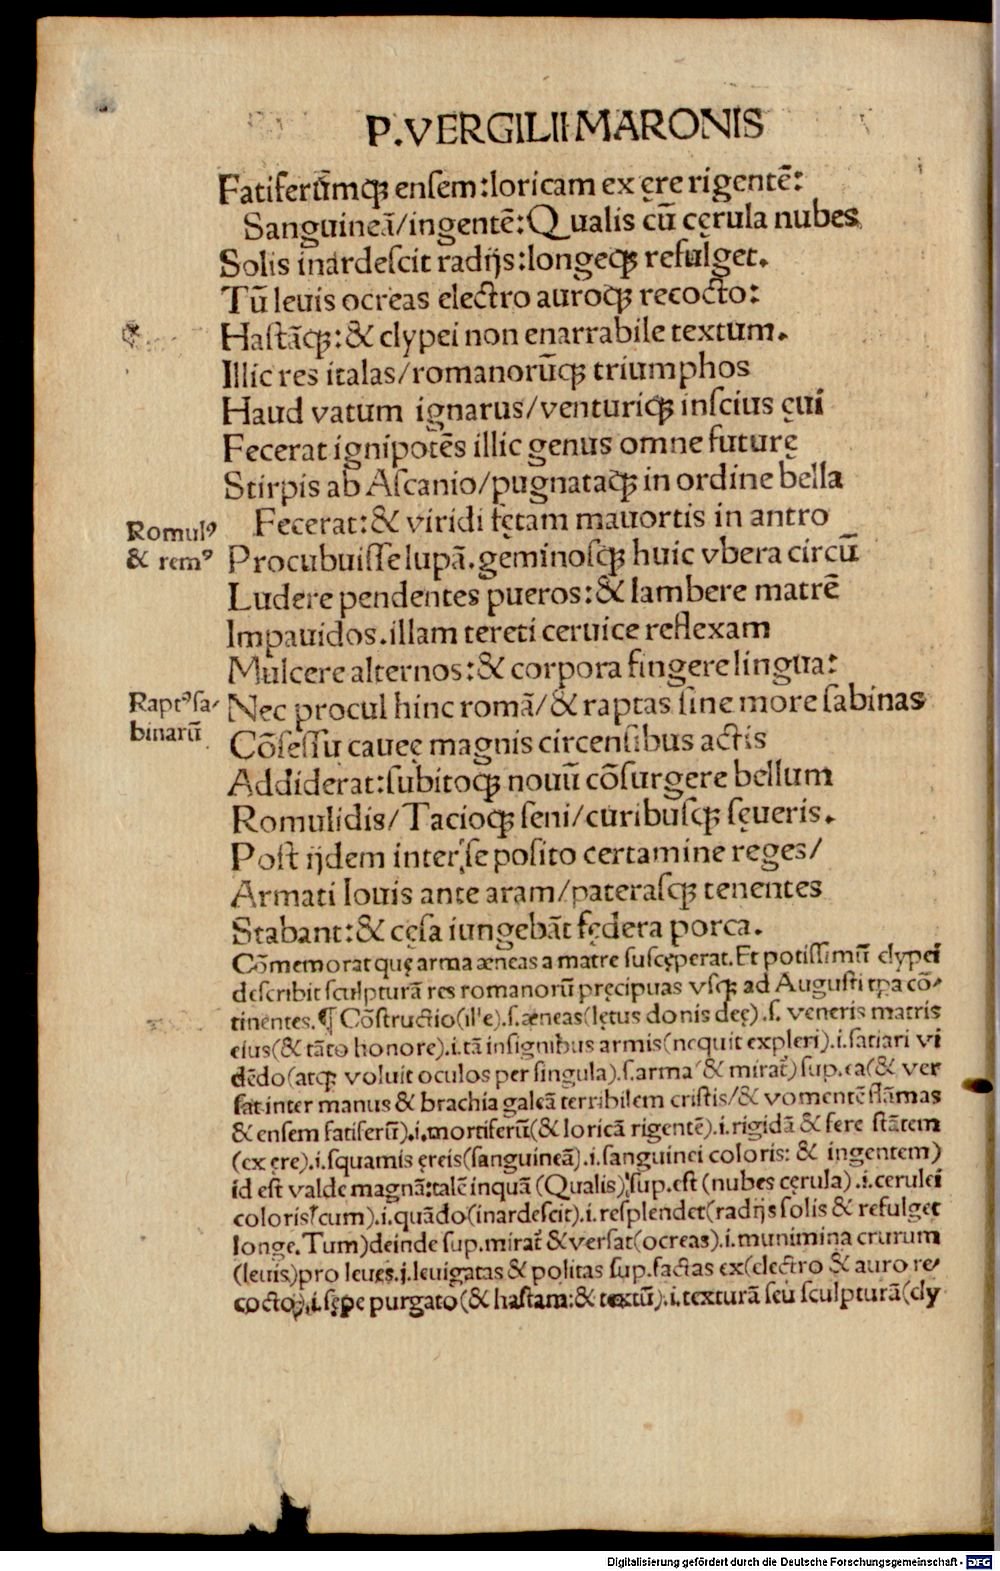 P.VERGILII MARONIS
Fatiferūmqꝫ ensem:loricam ex ęre rigentē:
Sanguineā/ingentē:Qualis cū cęrula nubes
Solis inardescit radijs:longeqꝫ refulget.
Tū leuis ocreas electro auroqꝫ recocto:
Hastāqꝫ:& clypei non enarrabile textum.
Illic res italas/romanorūqꝫ triumphos
Haud vatum ignarus/venturiqꝫ inscius ęui
Fecerat ignipotēs illic genus omne futurę
Stirpis ab Ascanio/pugnataqꝫ in ordine bella
Romulꝰ
& remꝰ
Fecerat:& viridi fętam mauortis in antro
Procubuisse lupā.geminosqꝫ huic vbera circū
Ludere pendentes pueros:& lambere matrē
Impauidos.illam tereti ceruice reflexam
Mulcere alternos:& corpora fingere lingua:
Raptꝰ sa-
binarū
Nec procul hinc romā/& raptas sine more sabinas
Cōsessu caueę magnis circensibus actis
Addiderat:subitoqꝫ nouū cōsurgere bellum
Romulidis/Tacioqꝫ seni/curibusqꝫ seueris.
Post ijdem inter se posito certamine reges/
Armati Iouis ante aram/paterasqꝫ tenentes
Stabant:& cęsa iungebāt fędera porca.
Cōmemorat quę arma æneas a matre suscęperat.Et potissimū clypei
describit sculpturā res romanorū pręcipuas vsqꝫ ad Augusti tꝑa cō-
tinentes.¶ Cōstructio(ille).s.æneas(lętus donis deę).s. veneris matris
eius(& tāto honore).i.tā insignibus armis(nequit expleri).i.satiari vi
dēdo(atqꝫ voluit oculos per singula).s.arma (& mirat̄) sup.ea(& ver
sat inter manus & brachia galeā terribilem cristis/& vomentē flāmas
& ensem fatiferū).i.mortiferū(& loricā rigentē).i.rigidā & fere stātem
(ex ęre).i.squamis ęreis(sanguineā).i.sanguinei coloris: & ingentem)
id est valde magnā:talē inquā (Qualis) sup.est (nubes cęrula) .i.cerulei
coloris(cum).i.quādo(inardescit).i.resplendet(radijs solis & refulget
longe.Tum)deinde sup.mirat̄ & versat(ocreas).i.munimina crurum
(leuis)pro leues.i.leuigatas & politas sup.factas ex(electro & auro re-
cocto).i.sępe purgato(& hastam:& textū).i.texturā seu sculpturā(cly
Digitalisierung gefördert durch die Deutsche Forschungsgemeinschaft - DFG